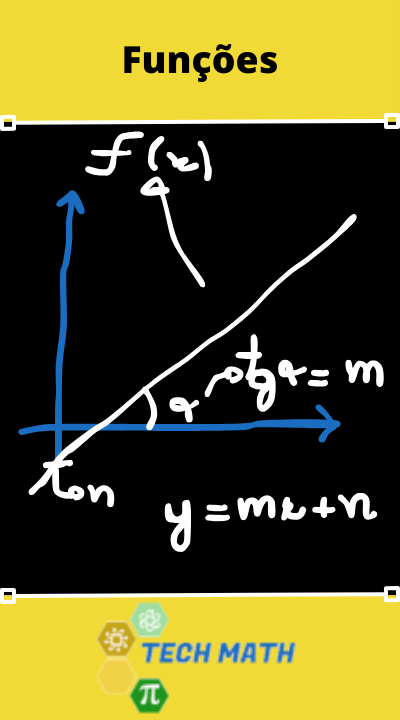 Funções
f(x)
α
tgα = m
n
y = mx + n
π
TECH MATH